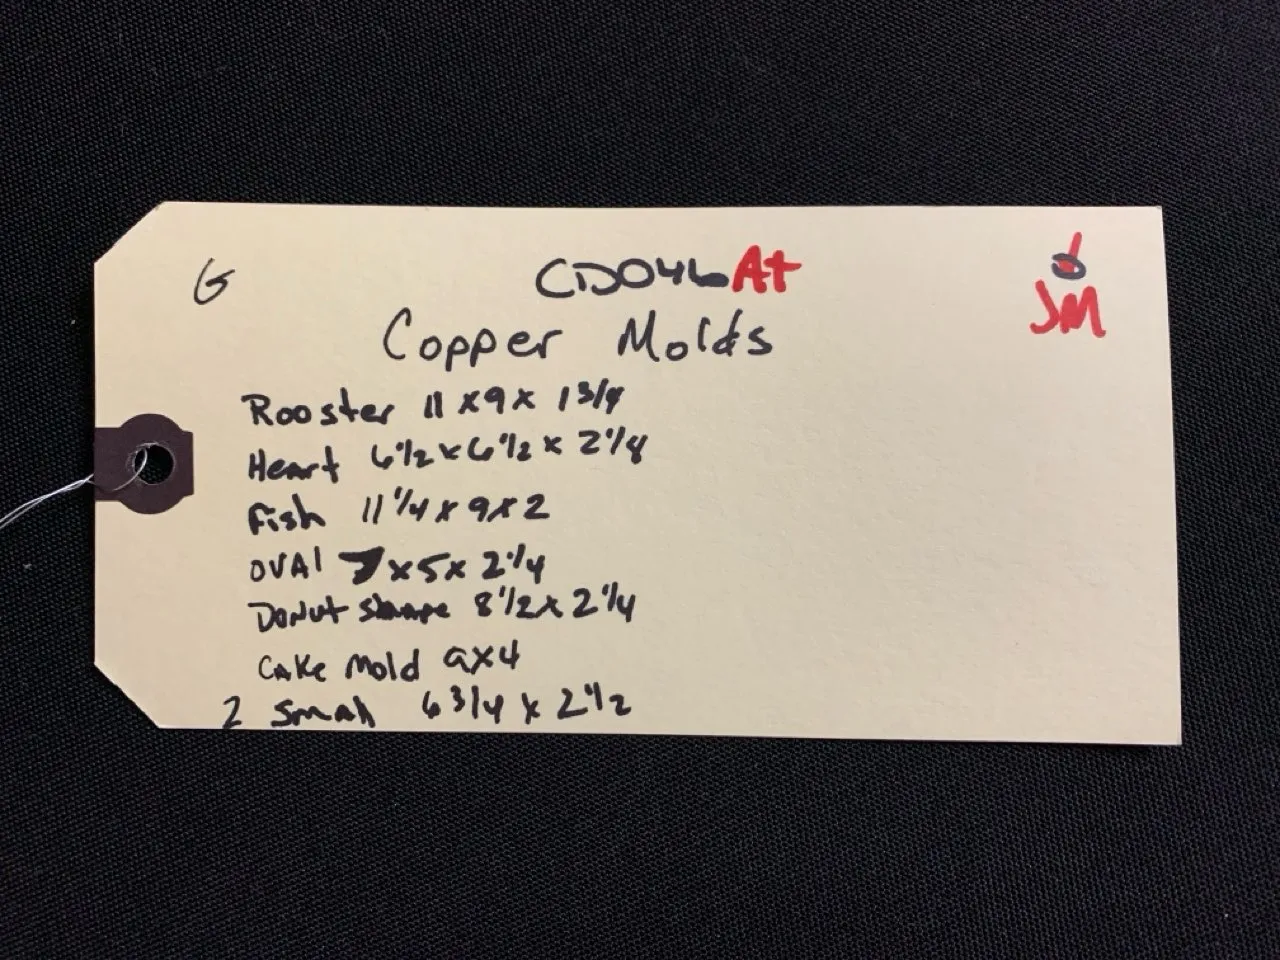 G
CD046 At
JM
Copper Molds
Rooster 11 x 9 x 1 3/4
Heart 6 1/2 x 6 1/2 x 2 1/8
Fish 11 1/4 x 9 x 2
OVAl 7 x 5 x 2 1/4
Donut shape 8 1/2 x 2 1/4
Cake Mold 9x4
2 Small 6 3/4 x 2 1/2